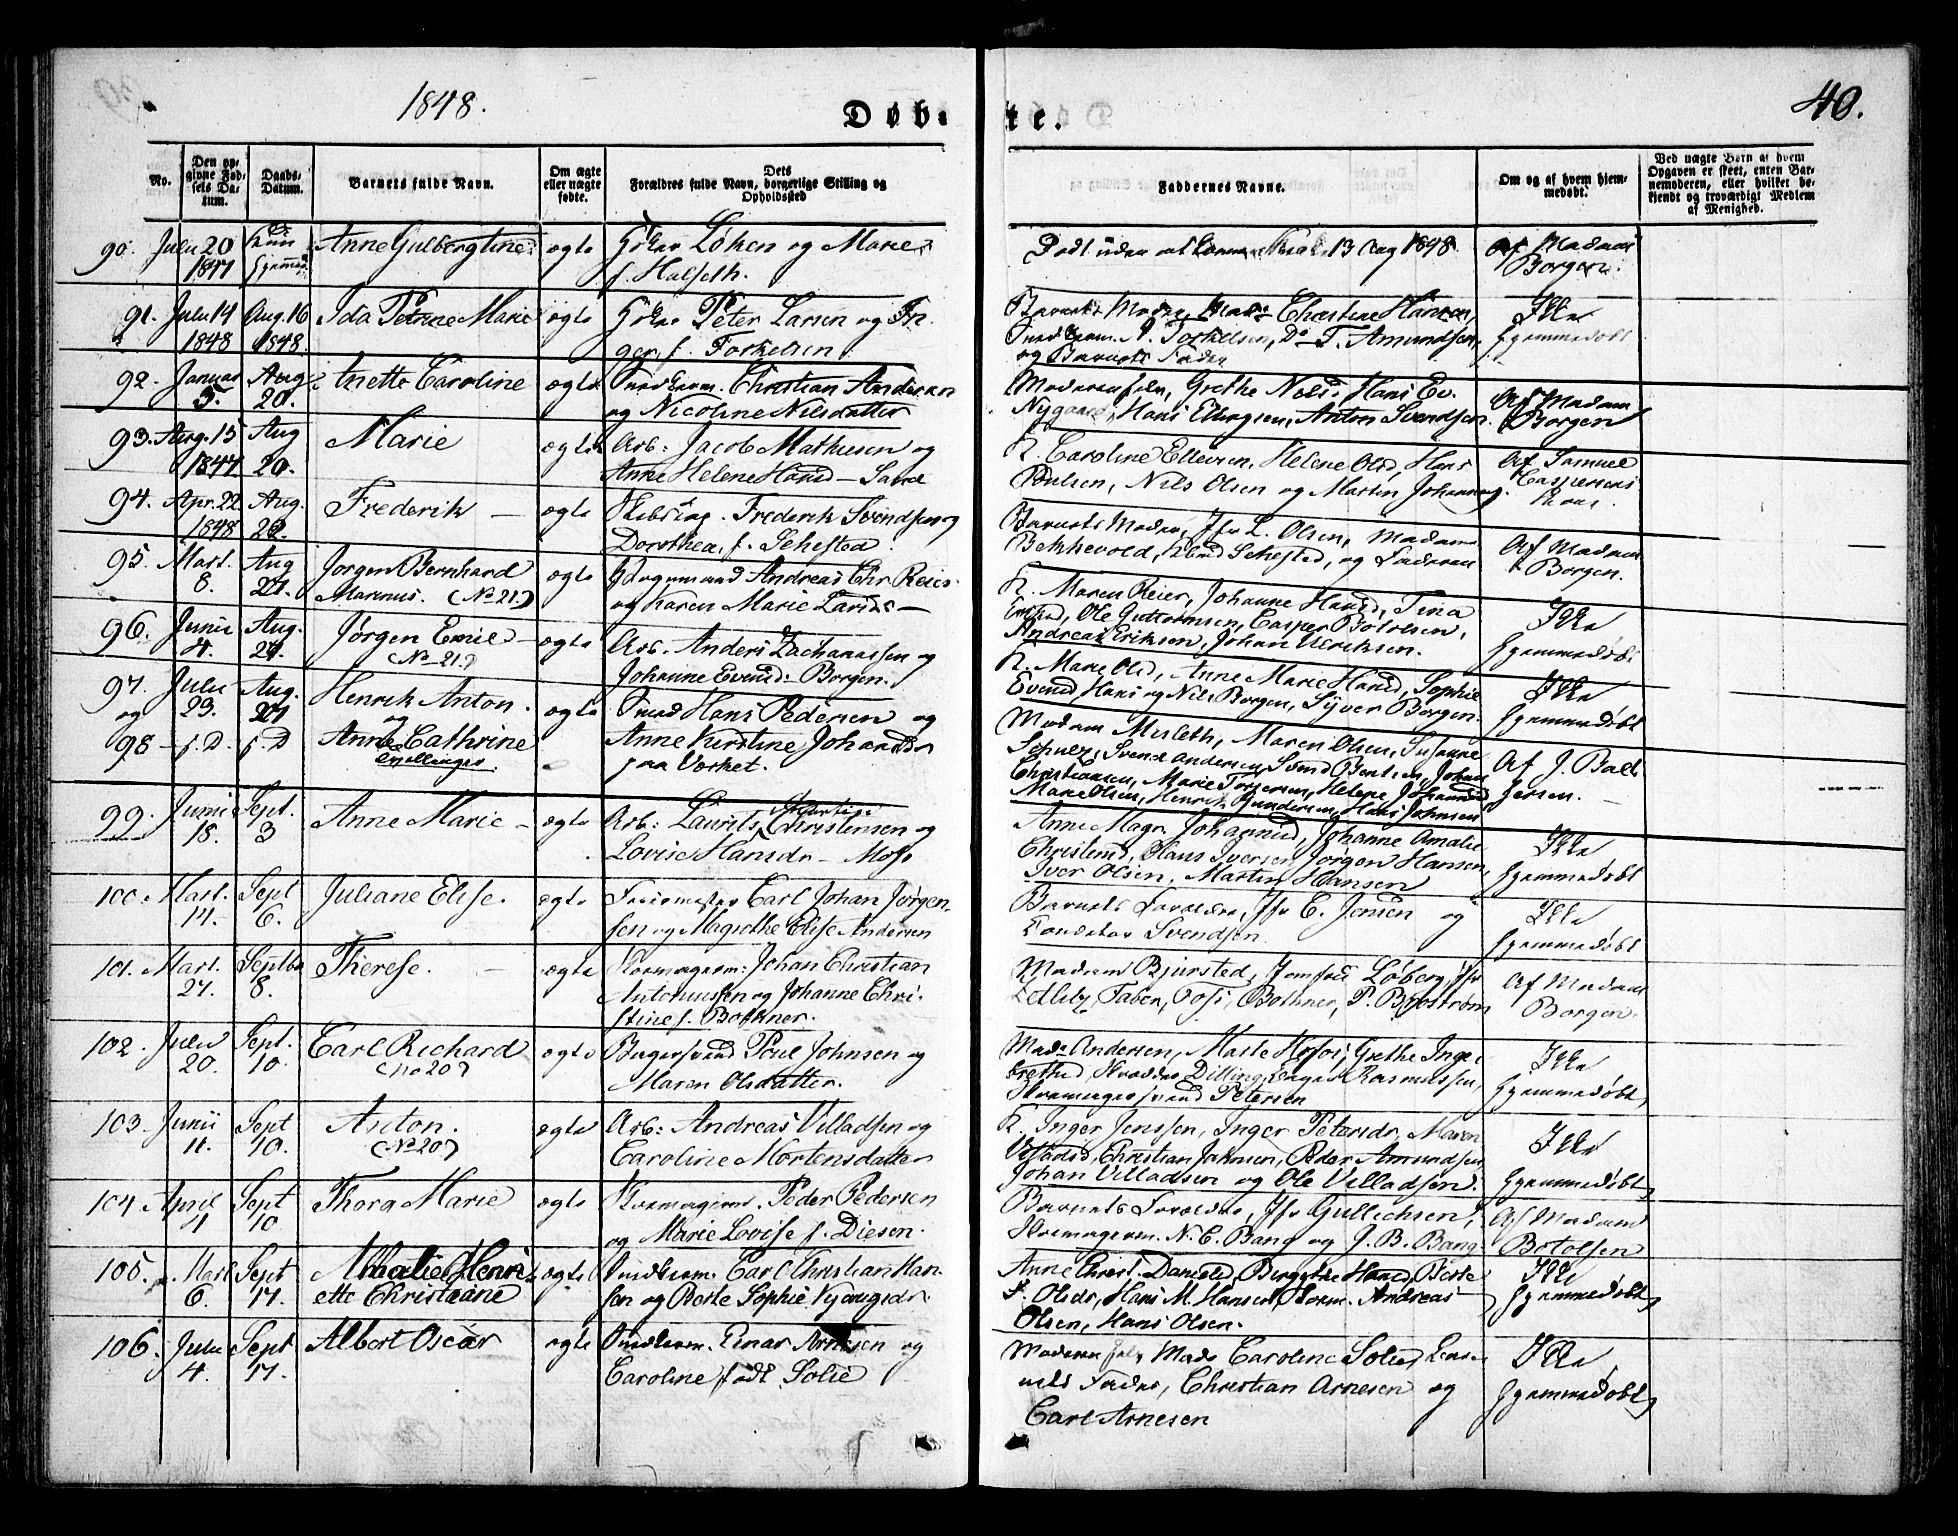 1848.
Døbte.
40.
No.
Den opgivne Fødsels Datum.
Daabs-Datum.
Barnets fulde Navn.
Om ægte eller uægte fødte.
Dets Forældres fulde Navn, borgerlige Stilling og Opholdssted
Faddernes Navne.
Om og af hvem hjemmedøbt.
Ved uægte Børn af hvem Opgaven er skeet, enten Barnemoderen, eller hvilket bekjendt og troværdigt Medlem af Menighed.
90. Julii 20 1847 Anne Gulbergine ægte Løken og Marie f. Halseth.
Dødt uden at 13 Aug 1848. Af Madam Borgen.
91. Julii 14 1848 Aug. 16 1848. Ida Petrine Marie ægte Peter Larsen og Inger, f. Torkelsen.
Barnets Moder, Christine Hansen, Torkelsen, Do T. Amundsen, og Barnets Fader
Ikke hjemmedøbt
92. Januar 5. Aug 20. Anette Caroline ægte Christian Andersen og Nicoline Nilsdatter
Moderen selv, Grethe Nilsd. Hans Ev. Nygaard, Hans Ellingsen, Anton Svendsen.
Af Madam Borgen
93. Aug. 15 1847 Aug 20. Marie ægte Arb: Jacob Mathiesen og Anne Helene Hansd —
K. Caroline Ellevsen, Helene Olsd, Hans Poulsen, Nils Olsen og Martin Johannes.
Af Samuel Caspersens Kone.
94. Apr. 22 1848 Aug. 22. Frederik — ægte Frederik Svendsen og Dorothea, f. Sehested.
Barnets Moder, Jfr L. Olsen, Madame Bekkevold, Sehested, og Faderen
Af Madam Borgen.
95. Mart. 8. Aug 27. Jørgen Bernhard Marinus. (No 21.) ægte Andreas Chr. Reier og Karen Marie Larsd —
K. Maren Reier, Johanne Hansd, Tina Ole Guttormsen, Casper Botolsen, Andreas Eriksen, Johan Ulriksen.
Ikke hjemmedøbt
96. Junii 4. Aug. 27. Jørgen Emil — (No 21.) ægte Arb. Anders Zachariassen og Johanne Evensd: Borgen.
K. Marie Olsd, Anne Marie Hansd, Sophie Evensd, Hans og Nils Borgen, Syver Borgen.
Ikke hjemmedøbt
97. og 98 Julii 23. s. D. Aug. 27 s. D Henrik Anton. og Anne Cathrine Tvillinger ægte Hans Pedersen og Anne Kirstine Johansdr paa Verket.
Madam Misleth, Maren Olsen, Susanne Schulz, Svend Andersen, Svend Bentsen, Johan Christiansen, Marie Torgersen, Helene Johannesd, Marie Olsen, Henrik Gundersen, Hans Johnsen
Af J. Ballgersen. —
99. Junii 18. Sept. 3 Anne Marie — ægte Arb: Laurits Christensen og Lovise Hansdr — Moss
Anne Magr. Johannesd, Johanne Amalie Christensd, Hans Iversen, Jørgen Hansen, Iver Olsen, Martin Hansen
Ikke hjemmedøbt
100. Mart. 14. Sept 6. Juliane Elise. ægte Carl Johan Jørgensen og Magrethe Elise Andersen
Barnets Forældre, Jfr C. Jensen og Svendsen
Ikke hjemmedøbt
101. Mart. 27. Septbr 8. Therese. ægte Skomagerm: Johan Christian Antoniussen og Johanne Christine f. Bothner.
Madam Bjursted, Jomfru Løberg, Zetlitz, Faber, Fosi, Bothner, P. Bygstrøm
Af Madam Borgen.
102. Julii 20. Sept. 10. Carl Richard (No 20) ægte Bagersvend Poul Johnsen og Maren Olsdatter.
Madm Andersen, Marte Hofos, Grethe Inge Dilling, Rasmussen, Skomagersvend Petersen
Ikke hjemmedøbt
103. Junii 11. Sept 10. Anton. (No 20) ægte Arb: Andreas Villadsen og Caroline Mortensdatter
K. Inger Jenssen, Inger Petersdr, Maren Villadsd, Christian Jakmsen, Peder Amundsen, Johan Villadsen og Ole Villadsen.
Ikke hjemmedøbt
104. April 4 Sept 10 Thora Marie ægte Skomagerm. Peder Pedersen og Marie Lovise f. Diesen.
Barnets Forældre, Jfr Gullichsen, Skomagerm. N. C. Bang og J. B. Bang.
Af Madam Botolsen
105. Mart 6. Sept 17. Amalie Henriette Christiane ægte Snedkerm. Carl Christian Hansen og Berte Sophie
Anne Christ. Danielsd, Berggithe Hansd, Berte S. Olsdr, Hans M. Hansen, Andreas Olsen, Hans Olsen.
Ikke hjemmedøbt
106. Julii 4. Sept 17. Albert Oscar ægte Snedkerm. Einar Arnesen og Caroline, født Solie
Moderen selv, Mads Caroline Solie, Fader, Christian Arnesen og Carl Arnesen
Ikke hjemmedøbt